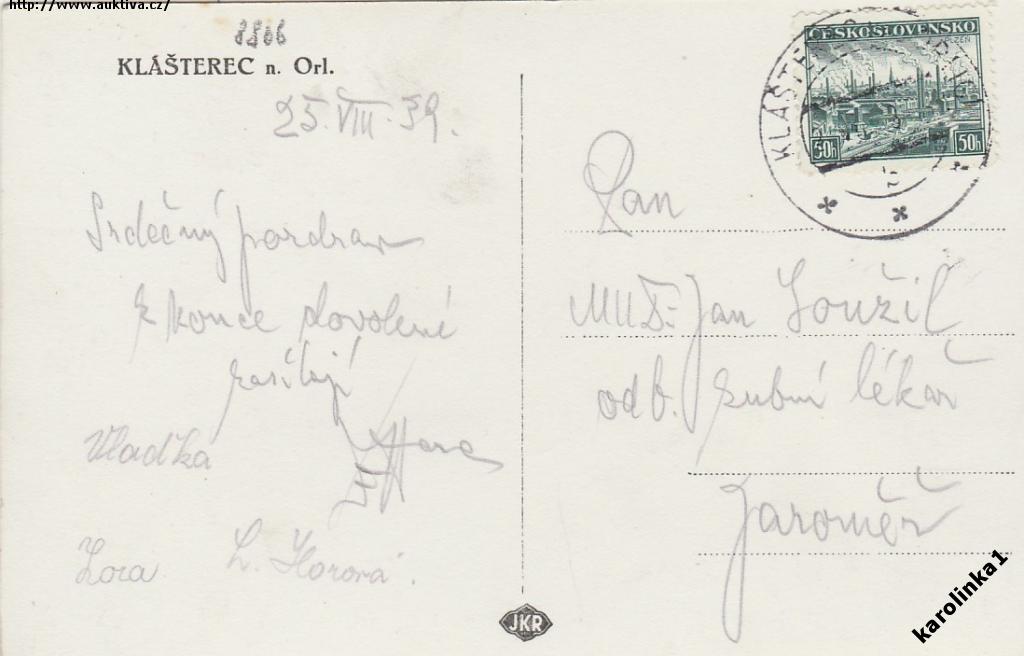 http://www.auktiva.cz/
8806
KLÁŠTEREC n. Orl.
25. VIII. 39.
Srdečný pozdrav
z konce dovolené
zasílají
Vladka
Zora
L. Horová.
ČESKOSLOVENSKO
PLZEŇ
50h 50h
KLÁŠTE
Pan
MUDr. Jan Loužil
odb. zubní lékař
Jaroměř
JKR
karolinka1